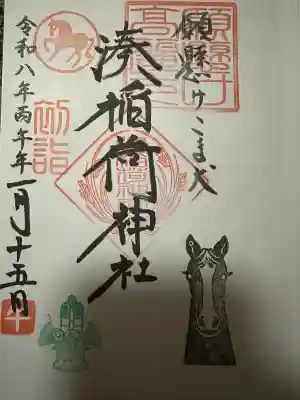 願懸けこま犬
湊稲荷神社
初詣
令和八年丙午年一月十五日
午